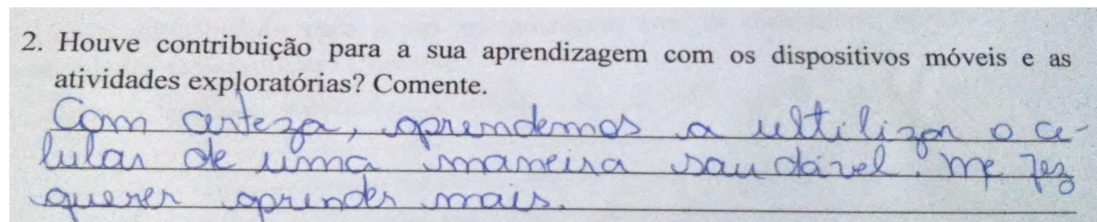 2. Houve contribuição para a sua aprendizagem com os dispositivos móveis e as
atividades exploratórias? Comente.
Com certeza, aprendemos a ultilizar o ce-
lular de uma maneira saudável. Me fez
querer aprender mais.